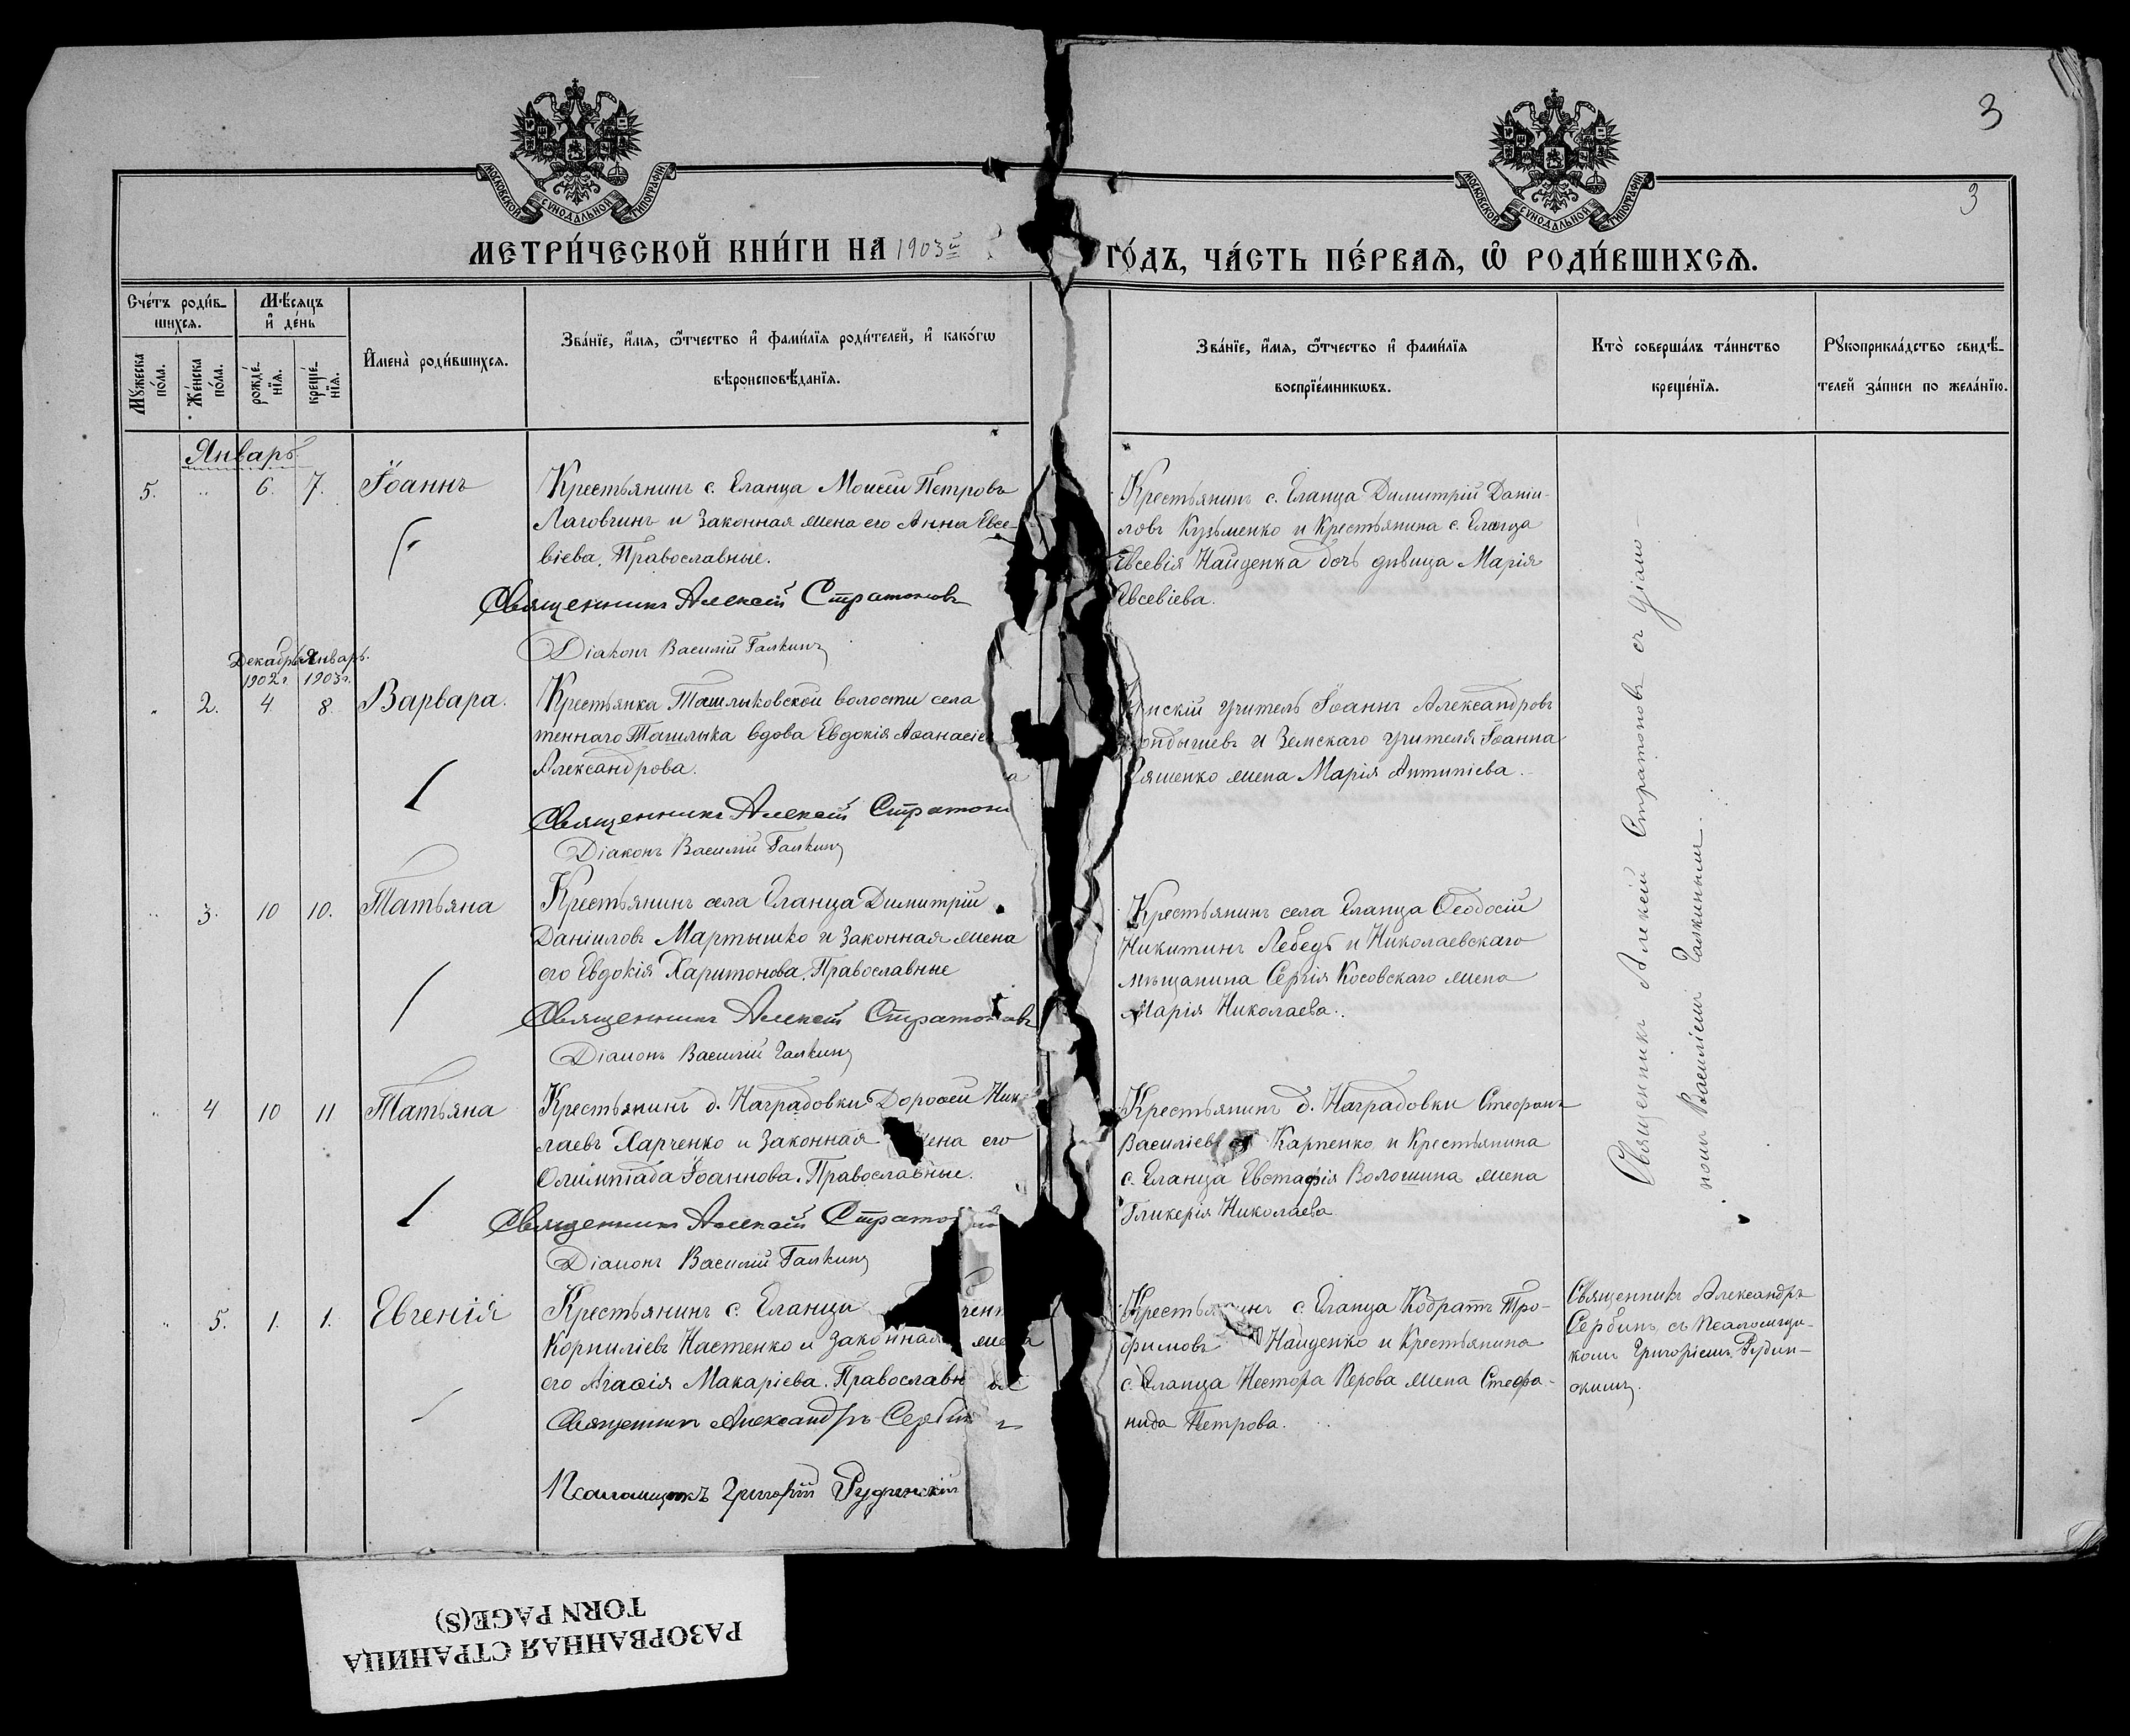 3
3
МОСКОВСКОЙ СѴНОДАЛЬНОЙ ТИПОГРАФІИ.
МОСКОВСКОЙ СѴНОДАЛЬНОЙ ТИПОГРАФІИ.
МЕТРИ́ЧЕСКОЙ КНИ́ГИ НА 1903й
ГО́ДЪ, ЧА́СТЬ ПЕ́РВАѦ, Ѡ҆ РОДИ́ВШИХСѦ.
Сче́тъ роди́в-
шихсѧ.
Мѣ́сѧцъ
и҆ де́нь
Мꙋ́жеска
по́ла.
Же́нска
по́ла.
рожде́-
нїѧ.
креще́-
нїѧ.
И҆мена̀ роди́вшихсѧ.
Зва́нїе, и҆́мѧ, ѻ҆́тчество и҆ фами́лїѧ роди́телей, и҆ како́гѡ
вѣроисповѣ́данїѧ.
Зва́нїе, и҆́мѧ, ѻ҆́тчество и҆ фами́лїѧ
воспрїе́мникѡвъ.
Кто̀ соверша́лъ та́инство
креще́нїѧ.
Рꙋкоприкла́дство свидѣ́-
телей за́писи по жела́нїю.
Январь
5. „ 6. 7. Іоаннъ
Крестьянинъ с. Еланца Моисей Петровъ
Лаговчинъ и законная жена его Анна Евсе-
віева. Православные.
Священникъ Алексій Стратоновъ
Діаконъ Василій Галкинъ
Крестьянинъ с. Еланца Димитрій Даніи-
ловъ Кузьменко и крестьянина с. Еланца
Евсевія Найденка дочь дѣвица Марія
Евсевіева.
Декабрь Январь.
1902 г. 1903 г.
„ 2. 4 8. Варвара.
Крестьянка Ташлыковской волости села
теннаго Ташлыка вдова Евдокія Аѳанасіе
Александрова.
Священникъ Алексій Стратон
Діаконъ Василій Галкинъ
скій учитель Іоаннъ Александровъ
и Земскаго учителя Іоанна
яшенко жена Марія Антипіева.
„ 3. 10 10. Татьяна
Крестьянинъ села Еланца Димитрій
Даніиловъ Мартышко и законная жена
его Евдокія Харитонова. Православные
Священникъ Алексій Стратоновъ
Діаконъ Василій Галкинъ
Крестьянинъ села Еланца Ѳеодосій
Никитинъ Лебедь и Николаевскаго
мѣщанина Сергія Косовскаго жена
Марія Николаева.
„ 4 10 11 Татьяна
Крестьянинъ д. Наградовки Дороѳей Ник
лаевъ Харченко и законная жена его
Олимпіада Іоаннова. Православные.
Священникъ Алексій Стратоновъ
Діаконъ Василій Галкинъ
Крестьянинъ д. Наградовки Стефанъ
Василіевъ Карпенко и крестьянина
с. Еланца Евстафія Волошина жена
Гликерія Николаева
Священникъ Алексій Стратоновъ съ діако-
номъ Василіемъ Галкинымъ.
„ 5. 1. 1. Евгенія
Крестьянинъ с. Еланца
Корниліевъ Настенко и законная жена
его Агаѳія Макаріева. Православные
Священникъ Александръ Сербинъ
Псаломщикъ Григорій Рудинскій
Крестьянинъ с. Еланца Кодратъ Тро-
фимовъ Найденко и крестьянина
с. Еланца Нестора Перова жена Стефа-
нида Петрова.
Священникъ Александръ
Сербинъ съ псаломщи-
комъ Григоріемъ Рудин-
скимъ.
РАЗОРВАННАЯ СТРАНИЦА
TORN PAGE(S)